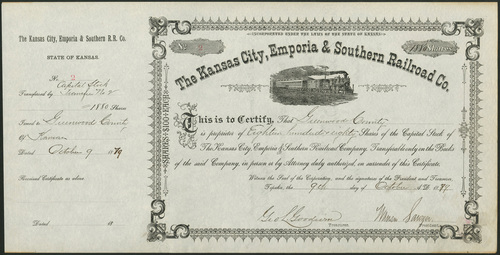 The Kansas City, Emporia & Southern R.R. Co.
STATE OF KANSAS.
No. 2
Capital Stock
Transferred by Transfer No 2
1880 Shares
Issued to Greenwood County
of Kansas
Dated October 9 1879
Received Certificate as above
Dated 18
INCORPORATED UNDER THE LAWS OF THE STATE OF KANSAS.
No. 2
1880 Shares
The Kansas City, Emporia & Southern Railroad Co.
SHARES $100 EACH
This is to Certify, That Greenwood County
is proprietor of Eighteen hundred & eighty Shares of the Capital Stock of
The Kansas City, Emporia & Southern Railroad Company. Transferable only on the Books
of the said Company, in person or by Attorney duly authorized, on surrender of this Certificate.
Witness the Seal of the Corporation, and the signatures of the President and Treasurer,
Topeka, the 9th day of October A.D. 1879.
Treasurer.
President.